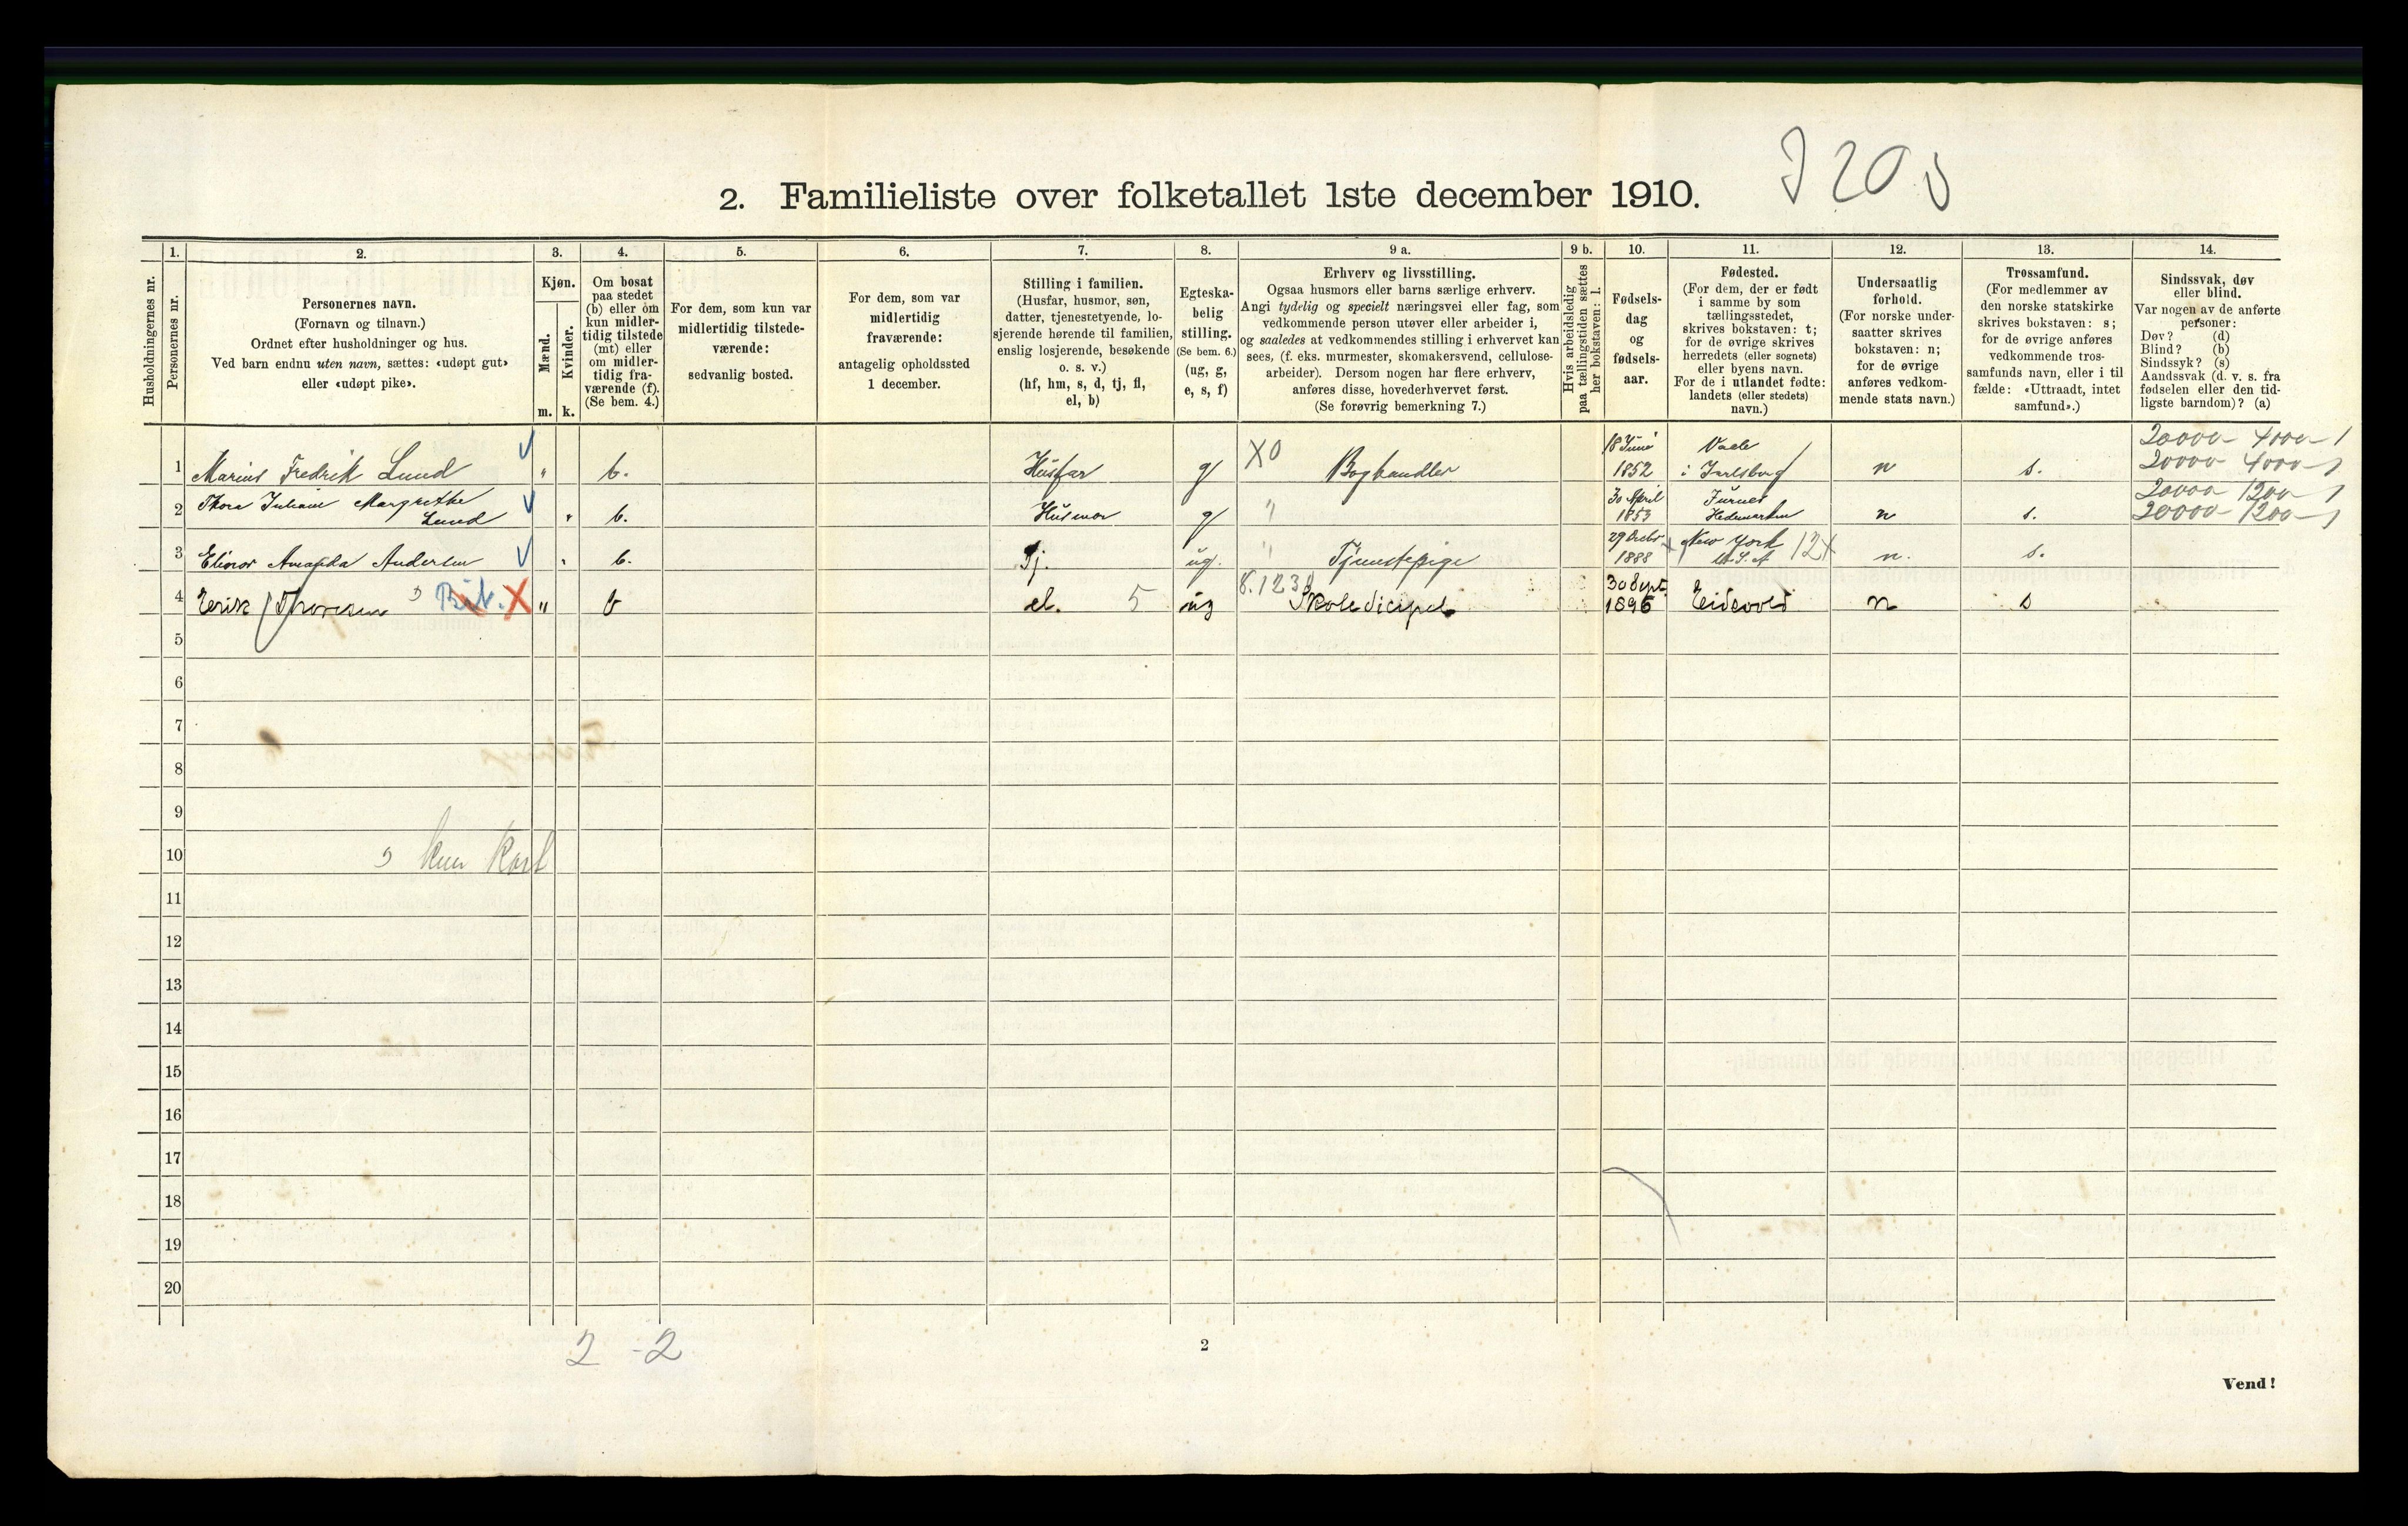 2. Familieliste over folketallet 1ste december 1910.
Husholdningernes nr.
1.
Personernes nr.
2.
Personernes navn.
(Fornavn og tilnavn.)
Ordnet efter husholdninger og hus.
Ved barn endnu uten navn, sættes: «udøpt gut»
eller «udøpt pike».
3.
Kjøn.
Mænd.
m.
Kvinder.
k.
4.
Om bosat
paa stedet
(b) eller om
kun midler-
tidig tilstede
(mt) eller
om midler-
tidig fra-
værende (f).
(Se bem. 4.)
5.
For dem, som kun var
midlertidig tilstede-
værende:
sedvanlig bosted.
6.
For dem, som var
midlertidig
fraværende:
antagelig opholdssted
1 december.
7.
Stilling i familien.
(Husfar, husmor, søn,
datter, tjenestetyende, lo-
sjerende hørende til familien,
enslig losjerende, besøkende
o. s. v.)
(hf, hm, s, d, tj, fl,
el, b)
8.
Egteska-
belig
stilling.
(Se bem. 6.)
(ug, g,
e, s, f)
9 a.
Erhverv og livsstilling.
Ogsaa husmors eller barns særlige erhverv.
Angi tydelig og specielt næringsvei eller fag, som
vedkommende person utøver eller arbeider i,
og saaledes at vedkommendes stilling i erhvervet kan
sees, (f. eks. murmester, skomakersvend, cellulose-
arbeider). Dersom nogen har flere erhverv,
anføres disse, hovederhvervet først.
(Se forøvrig bemerkning 7.)
9 b.
Hvis arbeidsledig
paa tællingstiden sættes
her bokstaven: l.
10.
Fødsels-
dag
og
fødsels-
aar.
11.
Fødested.
(For dem, der er født
i samme by som
tællingsstedet,
skrives bokstaven: t;
for de øvrige skrives
herredets (eller sognets)
eller byens navn.
For de i utlandet fødte:
landets (eller stedets)
navn.)
12.
Undersaatlig
forhold.
(For norske under-
saatter skrives
bokstaven: n;
for de øvrige
anføres vedkom-
mende stats navn.)
13.
Trossamfund.
(For medlemmer av
den norske statskirke
skrives bokstaven: s;
for de øvrige anføres
vedkommende tros-
samfunds navn, eller i til
fælde: «Uttraadt, intet
samfund».)
14.
Sindssvak, døv
eller blind.
Var nogen av de anførte
personer:
Døv? (d)
Blind? (b)
Sindssyk? (s)
Aandssvak (d. v. s. fra
fødselen eller den tid-
ligste barndom)? (a)
1 Marius Fredrik Lund " b. Husfar g X0 Boghandler 18 Juni 1852 Vaale i Jarlsberg n s. 20000 4000 1
20000 4000
2 Thora Juliane Margrethe Lund " b. Husmor g " 30 April 1853 Furnes Hedemarken n s. 20000 1200
20000 1200
3 Elinor Andersen " b. Tj. ug. " Tjenestepige 29 Octbr 1888 New York U.S.A 12x n. s.
4 Erik Thoresen X " b el. 5 ug Skoledicipel 30 Sept. 1896 Eidsvold n s
5
6
7
8
9
10 kun kort
11
12
13
14
15
16
17
18
19
20
2 - 2
2
Vend!